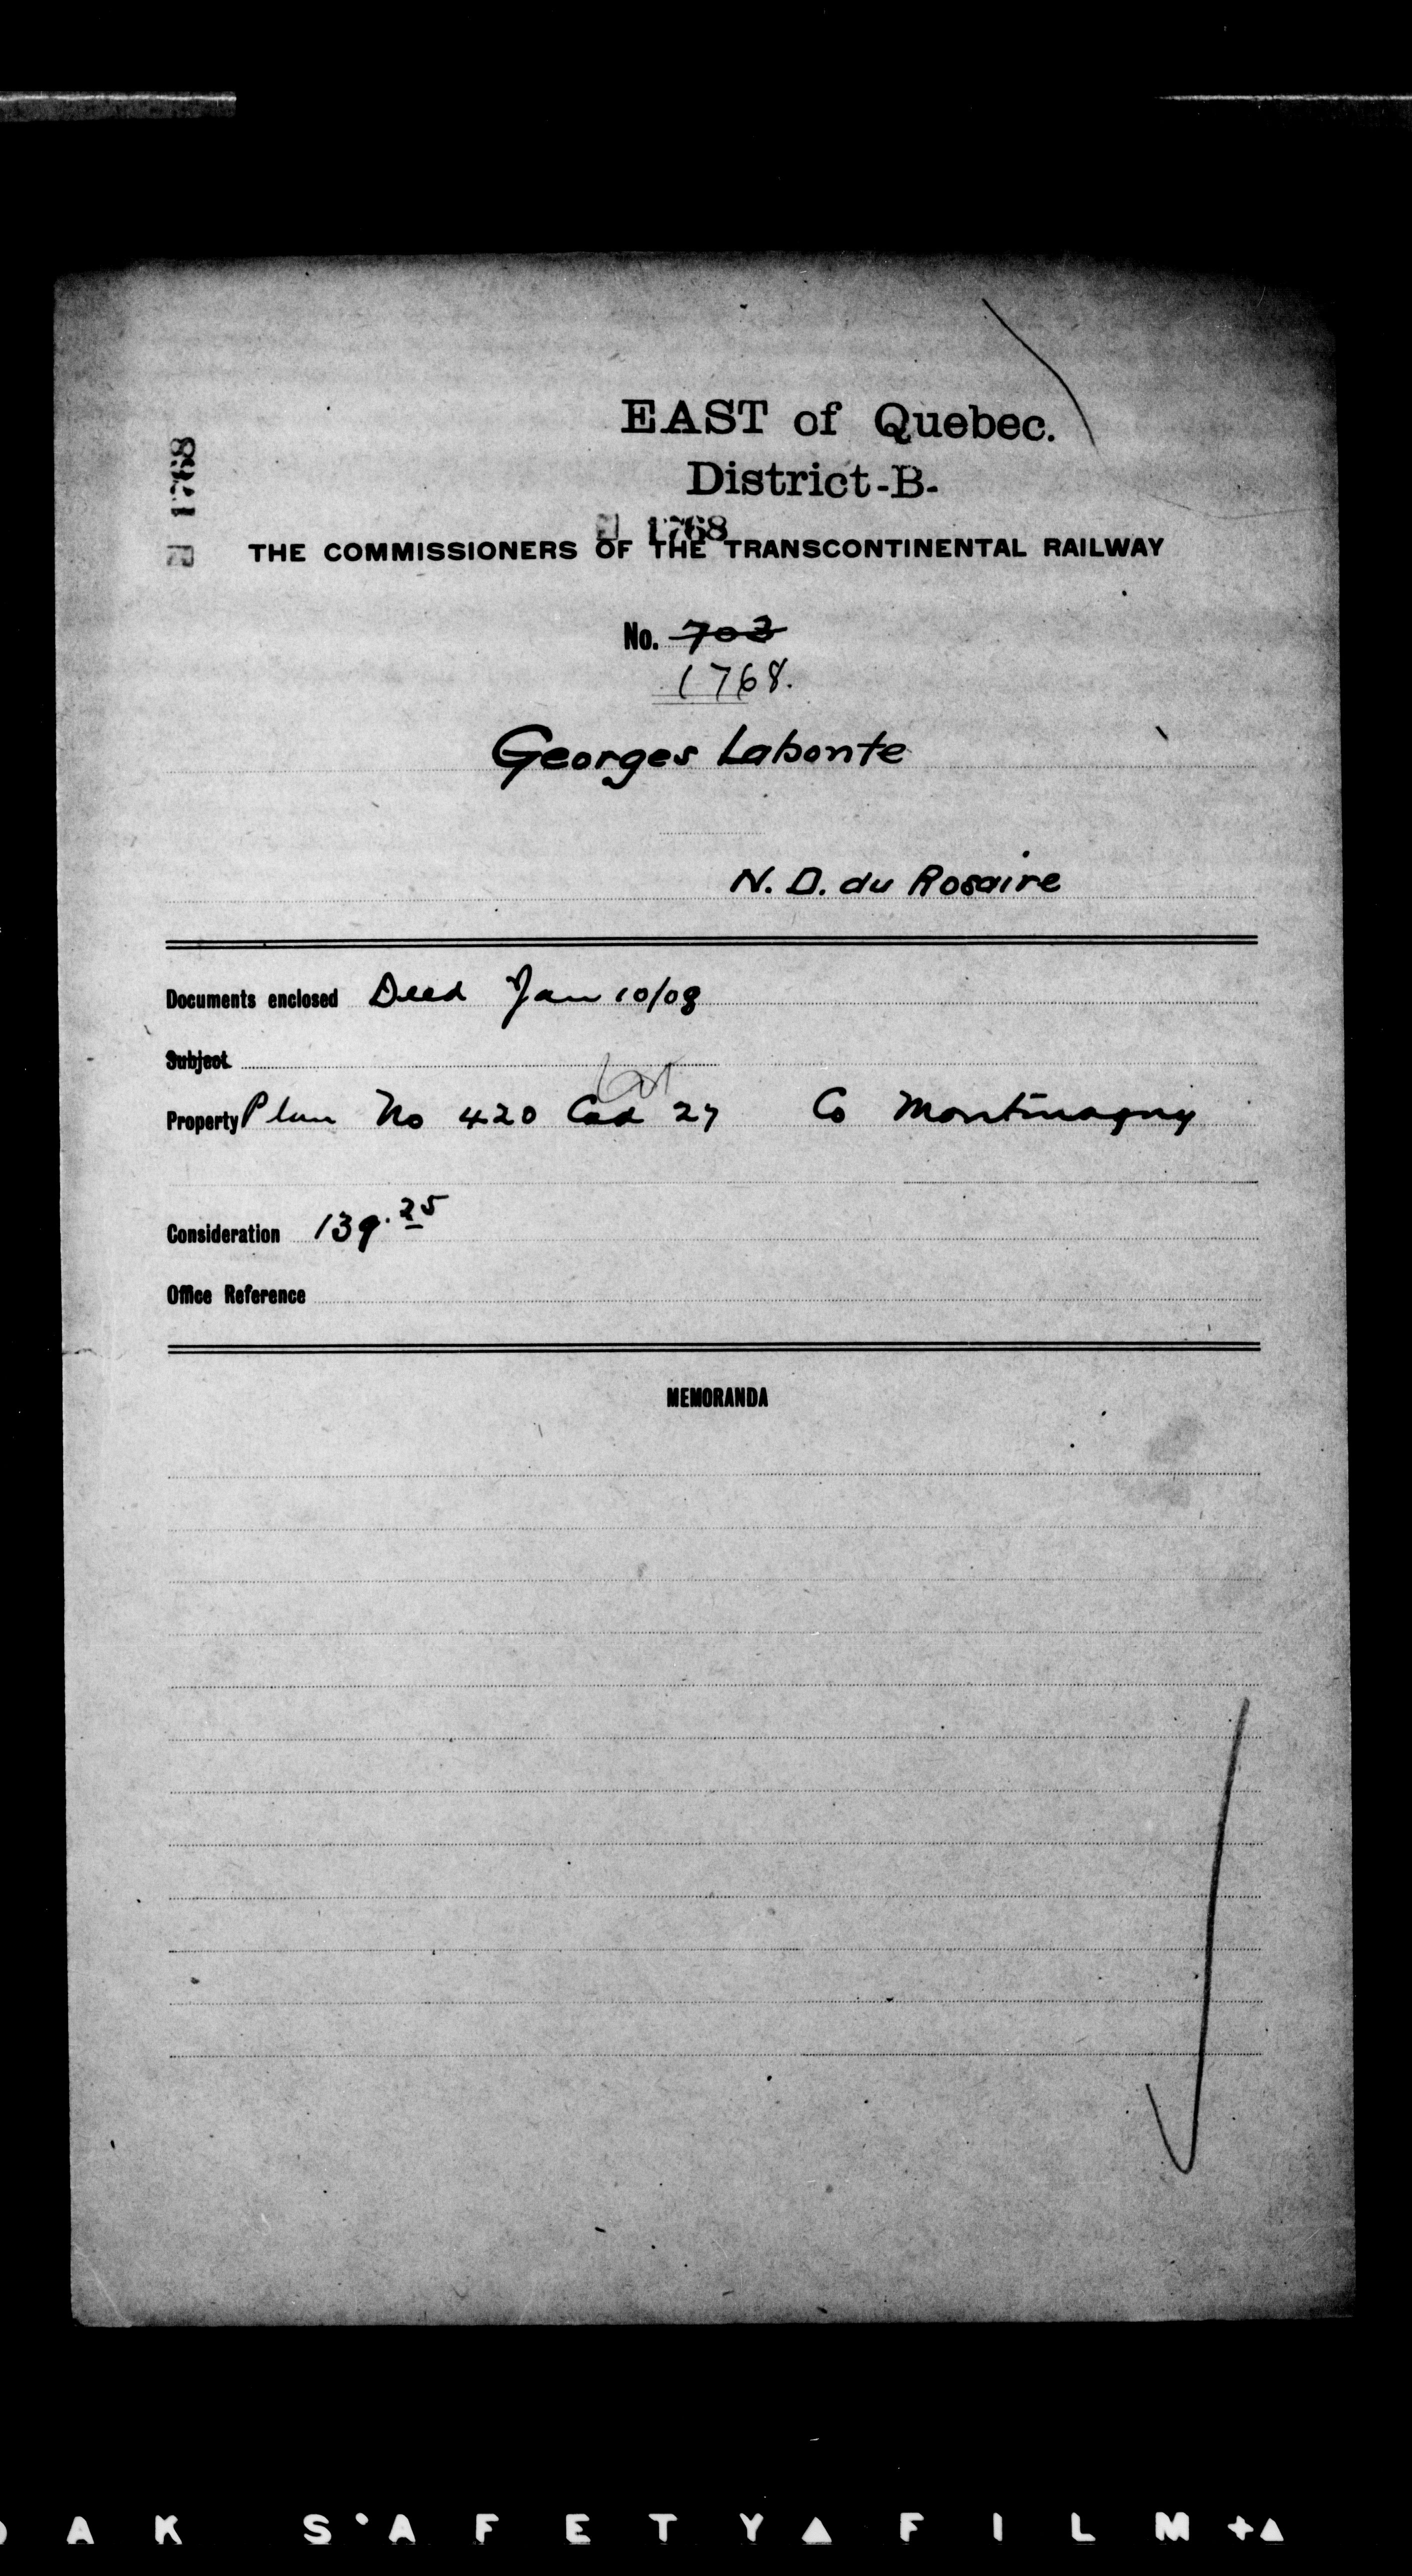 EAST of Quebec.
District-B-
1768
1768
THE COMMISSIONERS OF THE TRANSCONTINENTAL RAILWAY
No. 703
1768.
Georges Labonte
N. D. du Rosaire
Documents enclosed Deed Jan 10/08
Subject
Lot
Property Plan No 420 Cad 27 Co Montmagny
Consideration 139.25
Office Reference
MEMORANDA
AK S'AFETY▲FILM+▲